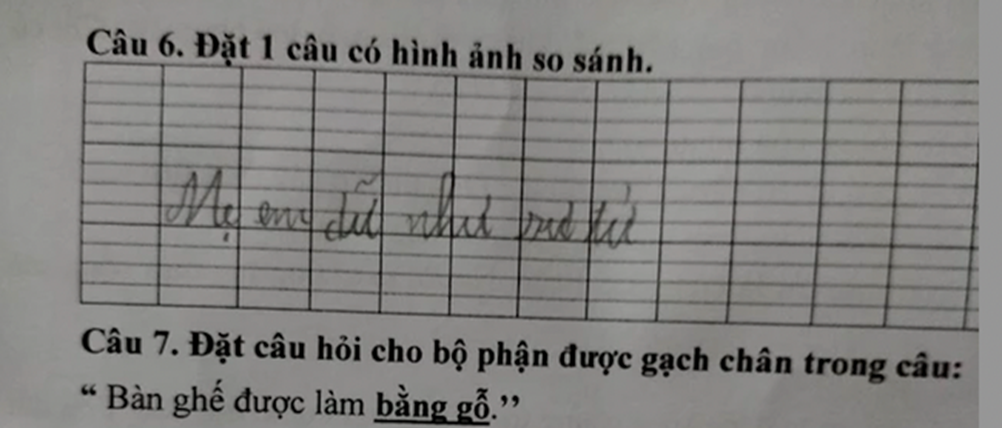 Câu 6. Đặt 1 câu có hình ảnh so sánh.
Mẹ em dữ như sư tử
Câu 7. Đặt câu hỏi cho bộ phận được gạch chân trong câu:
“ Bàn ghế được làm bằng gỗ.”